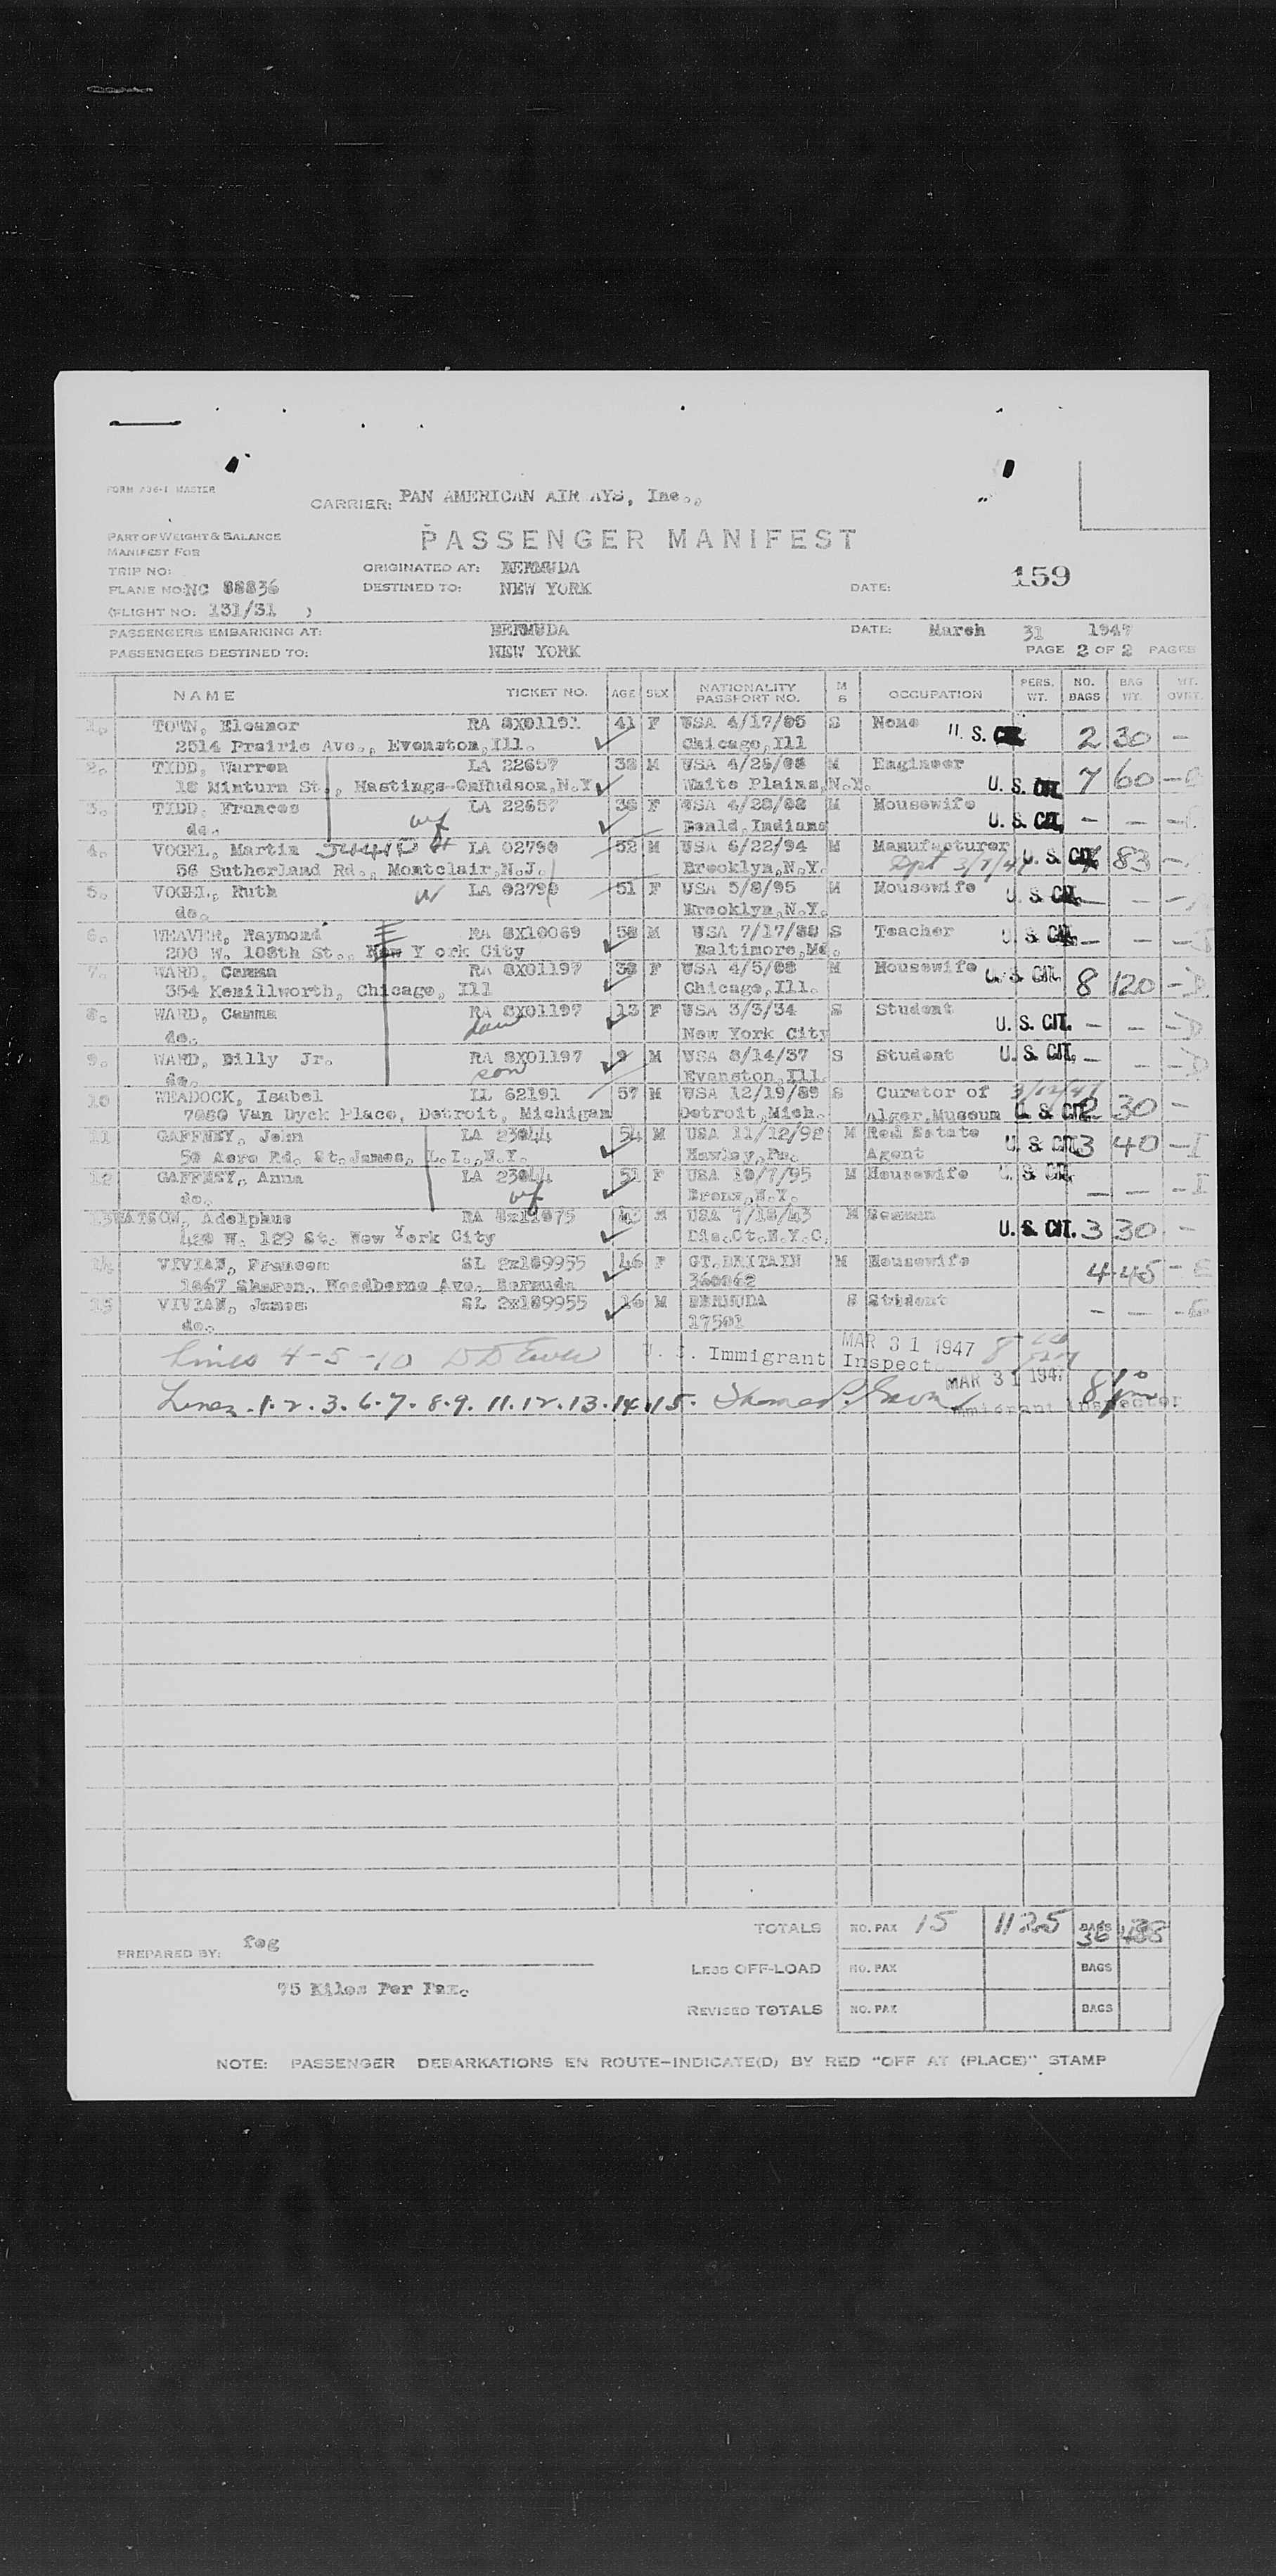 FORM 236-1 MASTER
CARRIER: PAN AMERICAN AIR AYS, Inc.,
PART OF WEIGHT & BALANCE
MANIFEST FOR
PASSENGER MANIFEST
TRIP NO:
ORIGINATED AT: BERMUDA
159
PLANE NO: NC 88836
DESTINED TO: NEW YORK
DATE:
(FLIGHT NO: 131/31 )
PASSENGERS EMBARKING AT: BERMUDA DATE: March 31 1947
PASSENGERS DESTINED TO: NEW YORK PAGE 2 OF 2 PAGES
NAME TICKET NO. AGE SEX NATIONALITY PASSPORT NO. M S OCCUPATION PERS. WT. NO. BAGS BAG WT. WT. OVRT.
1. TOWN, Eleanor RA 8X01191 41 F USA 4/17/05 S None U. S. CIT. 2 30 -
2514 Prairie Ave., Evanston,Ill. Chicago,Ill
2. TIDD, Warren LA 22657 38 M USA 4/26/08 M Engineer
18 Minturn St., Hastings-OnHudson,N.Y. White Plains,N.Y. U. S. CIT. 7 60 -
3. TIDD, Frances LA 22657 38 F USA 4/28/08 M Housewife
do. wf Donald,Indiana U. S. CIT. - - -
4. VOGEL, Martin LA 02790 52 M USA 6/22/94 M Manufacturer
56 Sutherland Rd., Montclair,N.J. Brooklyn,N.Y. Dpt 3/7/47 U. S. CIT. 83 -
5. VOGEL, Ruth W LA 02790 51 F USA 5/8/95 M Housewife
do. Brooklyn,N.Y. U. S. CIT. - - -
6. WEAVER, Raymond RA 8X10069 58 M USA 7/17/88 S Teacher
200 W. 108th St., New Y ork City Baltimore,Md. U. S. CIT. - - -
7. WARD, Camma RA 8X01197 38 F USA 4/5/08 M Housewife
354 Kenillworth, Chicago, Ill Chicago,Ill. U. S. CIT. 8 120 -
8. WARD, Camma RA 8X01197 13 F USA 3/3/34 S Student
do. dau New York City U. S. CIT. - - -
9. WARD, Billy Jr. RA 8X01197 9 M USA 8/14/37 S Student U. S. CIT. - - -
do. son Evanston,Ill.
10 WEADOCK, Isabel LL 62191 57 M USA 12/19/89 S Curator of 3/12/47
7080 Van Dyck Place, Detroit, Michigan Detroit,Mich. Alger,Museum U. S. CIT. 2 30 -
11 GAFFNEY, John LA 23044 54 M USA 11/12/92 M Real Estate
50 Acre Rd. St.James, L.I.,N.Y. Hawley,Pa. Agent U. S. CIT. 3 40 -
12 GAFFNEY, Anna LA 23044 51 F USA 10/7/95 M Housewife U. S. CIT.
do. wf Bronx,N.Y. - - -
13 WATSON, Adolphus RA 8x11075 M USA 7/18/43 M Seaman
420 W. 129 St. New York City Dis.Ct.N.Y.C. U. S. CIT. 3 30 -
14 VIVIAN, Frances SL 2x109955 46 F GT.BRITAIN M Housewife
1867 Sharon, Woodborne Ave. Bermuda 360862 4 45 -
15 VIVIAN, James SL 2x109955 16 M BERMUDA S Student
do. 17501 - - -
Lines 4-5-10 U. S. Immigrant Inspector MAR 31 1947
Lines 1. 2. 3. 6. 7. 8. 9. 11. 12. 13. 14. 15. MAR 31 1947 Immigrant Inspector
TOTALS NO. PAX 15 1125 BAGS 36
PREPARED BY: fog
LESS OFF-LOAD NO. PAX BAGS
75 Kilos Per Pax.
REVISED TOTALS NO. PAX BAGS
NOTE: PASSENGER DEBARKATIONS EN ROUTE-INDICATE(D) BY RED "OFF AT (PLACE)" STAMP